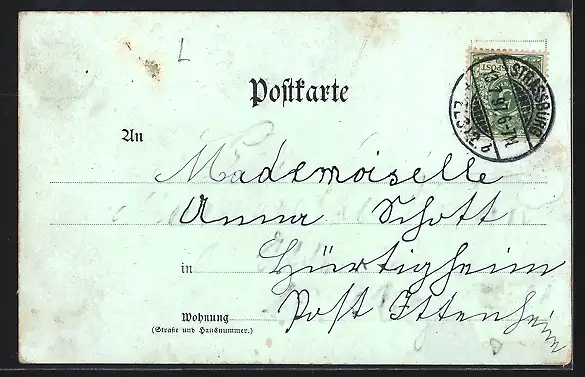 L
Postkarte
STRASSBURG
An
Mademoiselle
Anna Schott
in Hürtigheim
Wohnung Post Ittenheim
(Straße und Hausnummer.)